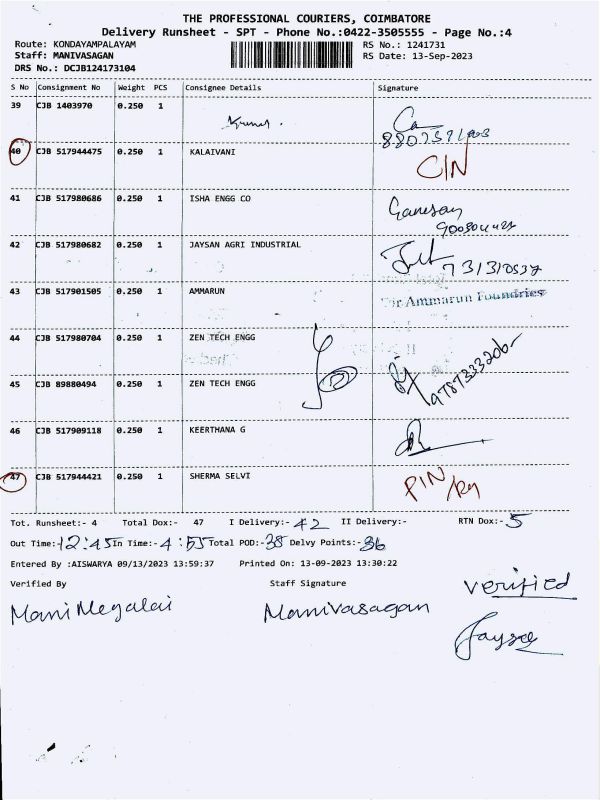 THE PROFESSIONAL COURIERS, COIMBATORE
Delivery Runsheet - SPT - Phone No.:0422-3505555 - Page No.:4
Route: KONDAYAMPALAYAM RS No.: 1241731
Staff: MANIVASAGAN RS Date: 13-Sep-2023
DRS No.: DCJB124173104
S No Consignment No Weight PCS Consignee Details Signature
39 CJB 1403970 0.250 1
40 CJB 517944475 0.250 1 KALAIVANI C/N
41 CJB 517980686 0.250 1 ISHA ENGG CO Ganesan
42 CJB 517980682 0.250 1 JAYSAN AGRI INDUSTRIAL
43 CJB 517901505 0.250 1 AMMARUN For Ammarun Foundries
44 CJB 517980704 0.250 1 ZEN TECH ENGG
45 CJB 89880494 0.250 1 ZEN TECH ENGG
46 CJB 517909118 0.250 1 KEERTHANA G
47 CJB 517944421 0.250 1 SHERMA SELVI
Tot. Runsheet:- 4 Total Dox:- 47 I Delivery:- 42 II Delivery:- RTN Dox:- 5
Out Time:- 12:45 In Time:- 4:55 Total POD:- 38 Delvy Points:- 36
Entered By :AISWARYA 09/13/2023 13:59:37 Printed On: 13-09-2023 13:30:22
Verified By Staff Signature verified
Mani Megalai Manivasagan